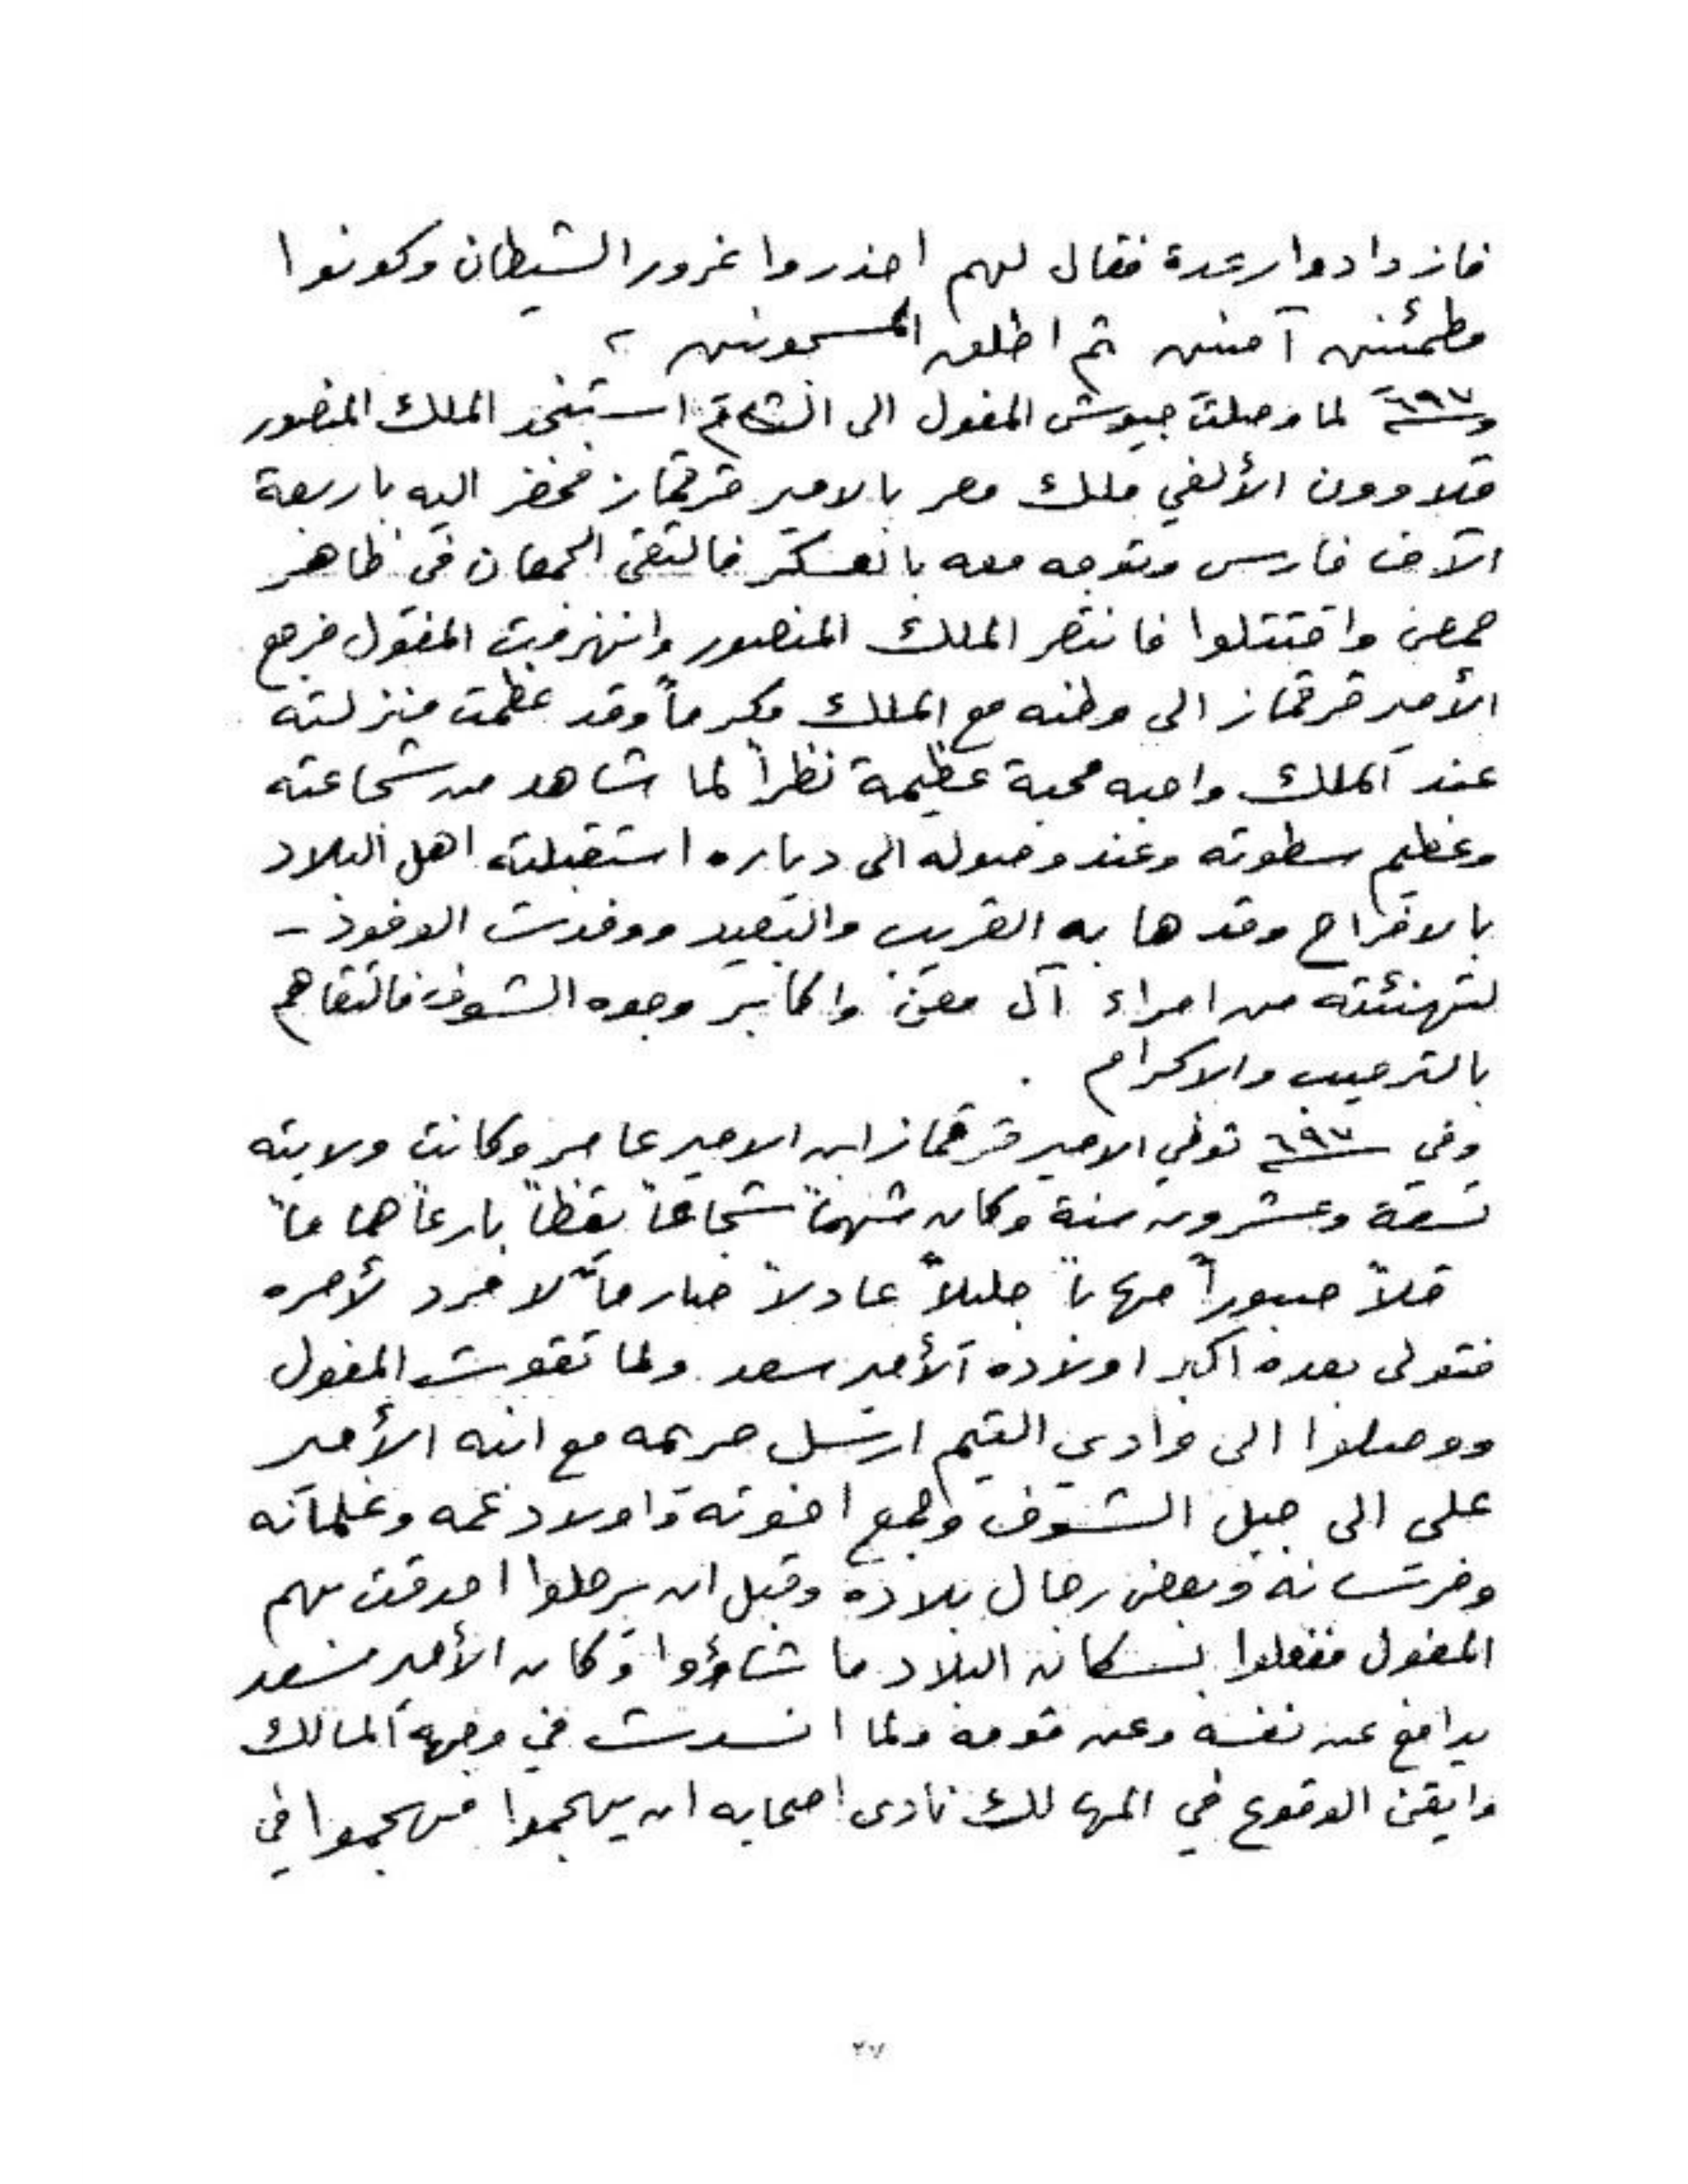 فازدادوا رعدة فقال لهم احذروا غرور الشيطان وكونوا
مطمئنين آمنين ثم اطلق المسجونين ،
وسنة ٦٩٧ لما وصلت جيوش المغول الى الشام استنجد الملك المنصور
قلاوون الألفي ملك مصر بالامير قرقماز فحضر اليه باربعة
آلاف فارس وتوجه معه بالعسكر فالتقى الجمعان في ظاهر
حمص واقتتلوا فانتصر الملك المنصور وانهزمت المغول فرجع
الأمير قرقماز الى وطنه مع الملك مكرماً وقد عظمت منزلته
عند الملك واحبه محبة عظيمة نظراً لما شاهد من شجاعته
وعظيم سطوته وعند وصوله الى دياره استقبلته اهل البلاد
بالافراح وقد هابه القريب والبعيد ووفدت الوفود -
لتهنئته من امراء آل معن واكابر وجوه الشوف فالتقاهم
بالترحيب والاكرام .
وفي سنة ٦٩٧ توفي الامير قرقماز ابن الامير عامر وكانت ولايته
تسعة وعشرون سنة وكان شهماً شجاعاً يقظاً بارعاً هماماً
قلاً صبوراً مهاباً جليلاً عادلاً صارماً لا مرد لأمره
فتولى بعده اكبر اولاده الأمير سعد ولما تقوت المغول
ووصلوا الى وادي التيم ارسل حريمه مع ابنه الأمير
علي الى جبل الشوف وجمع اخوته واولاد عمه وغلمانه
وفرسانه وبعض رجال بلاده وقبل ان يرحلوا احدقت بهم
المغول ففعلوا بسكان البلاد ما شاؤوا وكان الأمير سعد
يدافع عن نفسه وعن قومه ولما انسدت في وجهه المسالك
وايقن الوقوع في المهالك نادى اصحابه ان يهجموا فهجموا في
٢٠٧